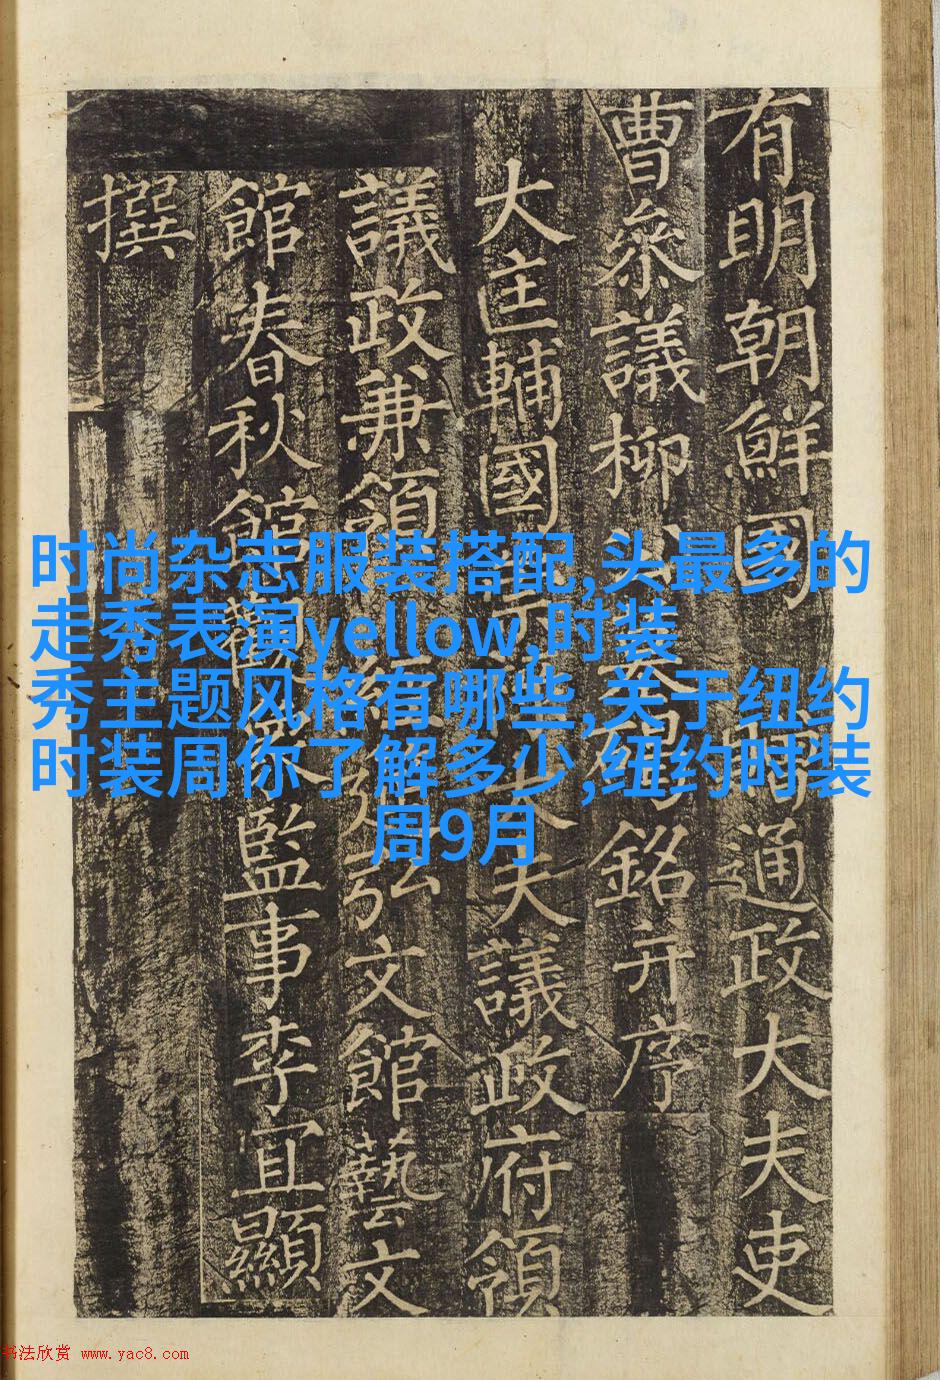 有明朝鮮國通政大夫吏
曹參議柳公墓碣銘并序
大匡輔國崇祿大夫議政府領
議政兼領經筵弘文館藝文
館春秋館觀象監事李宜顯
撰
时尚杂志服装搭配,头最多的
走秀表演yellow,时装
秀主题风格有哪些,关于纽约
时装周你了解多少,纽约时装
周9月
书法欣赏 www.yac8.com